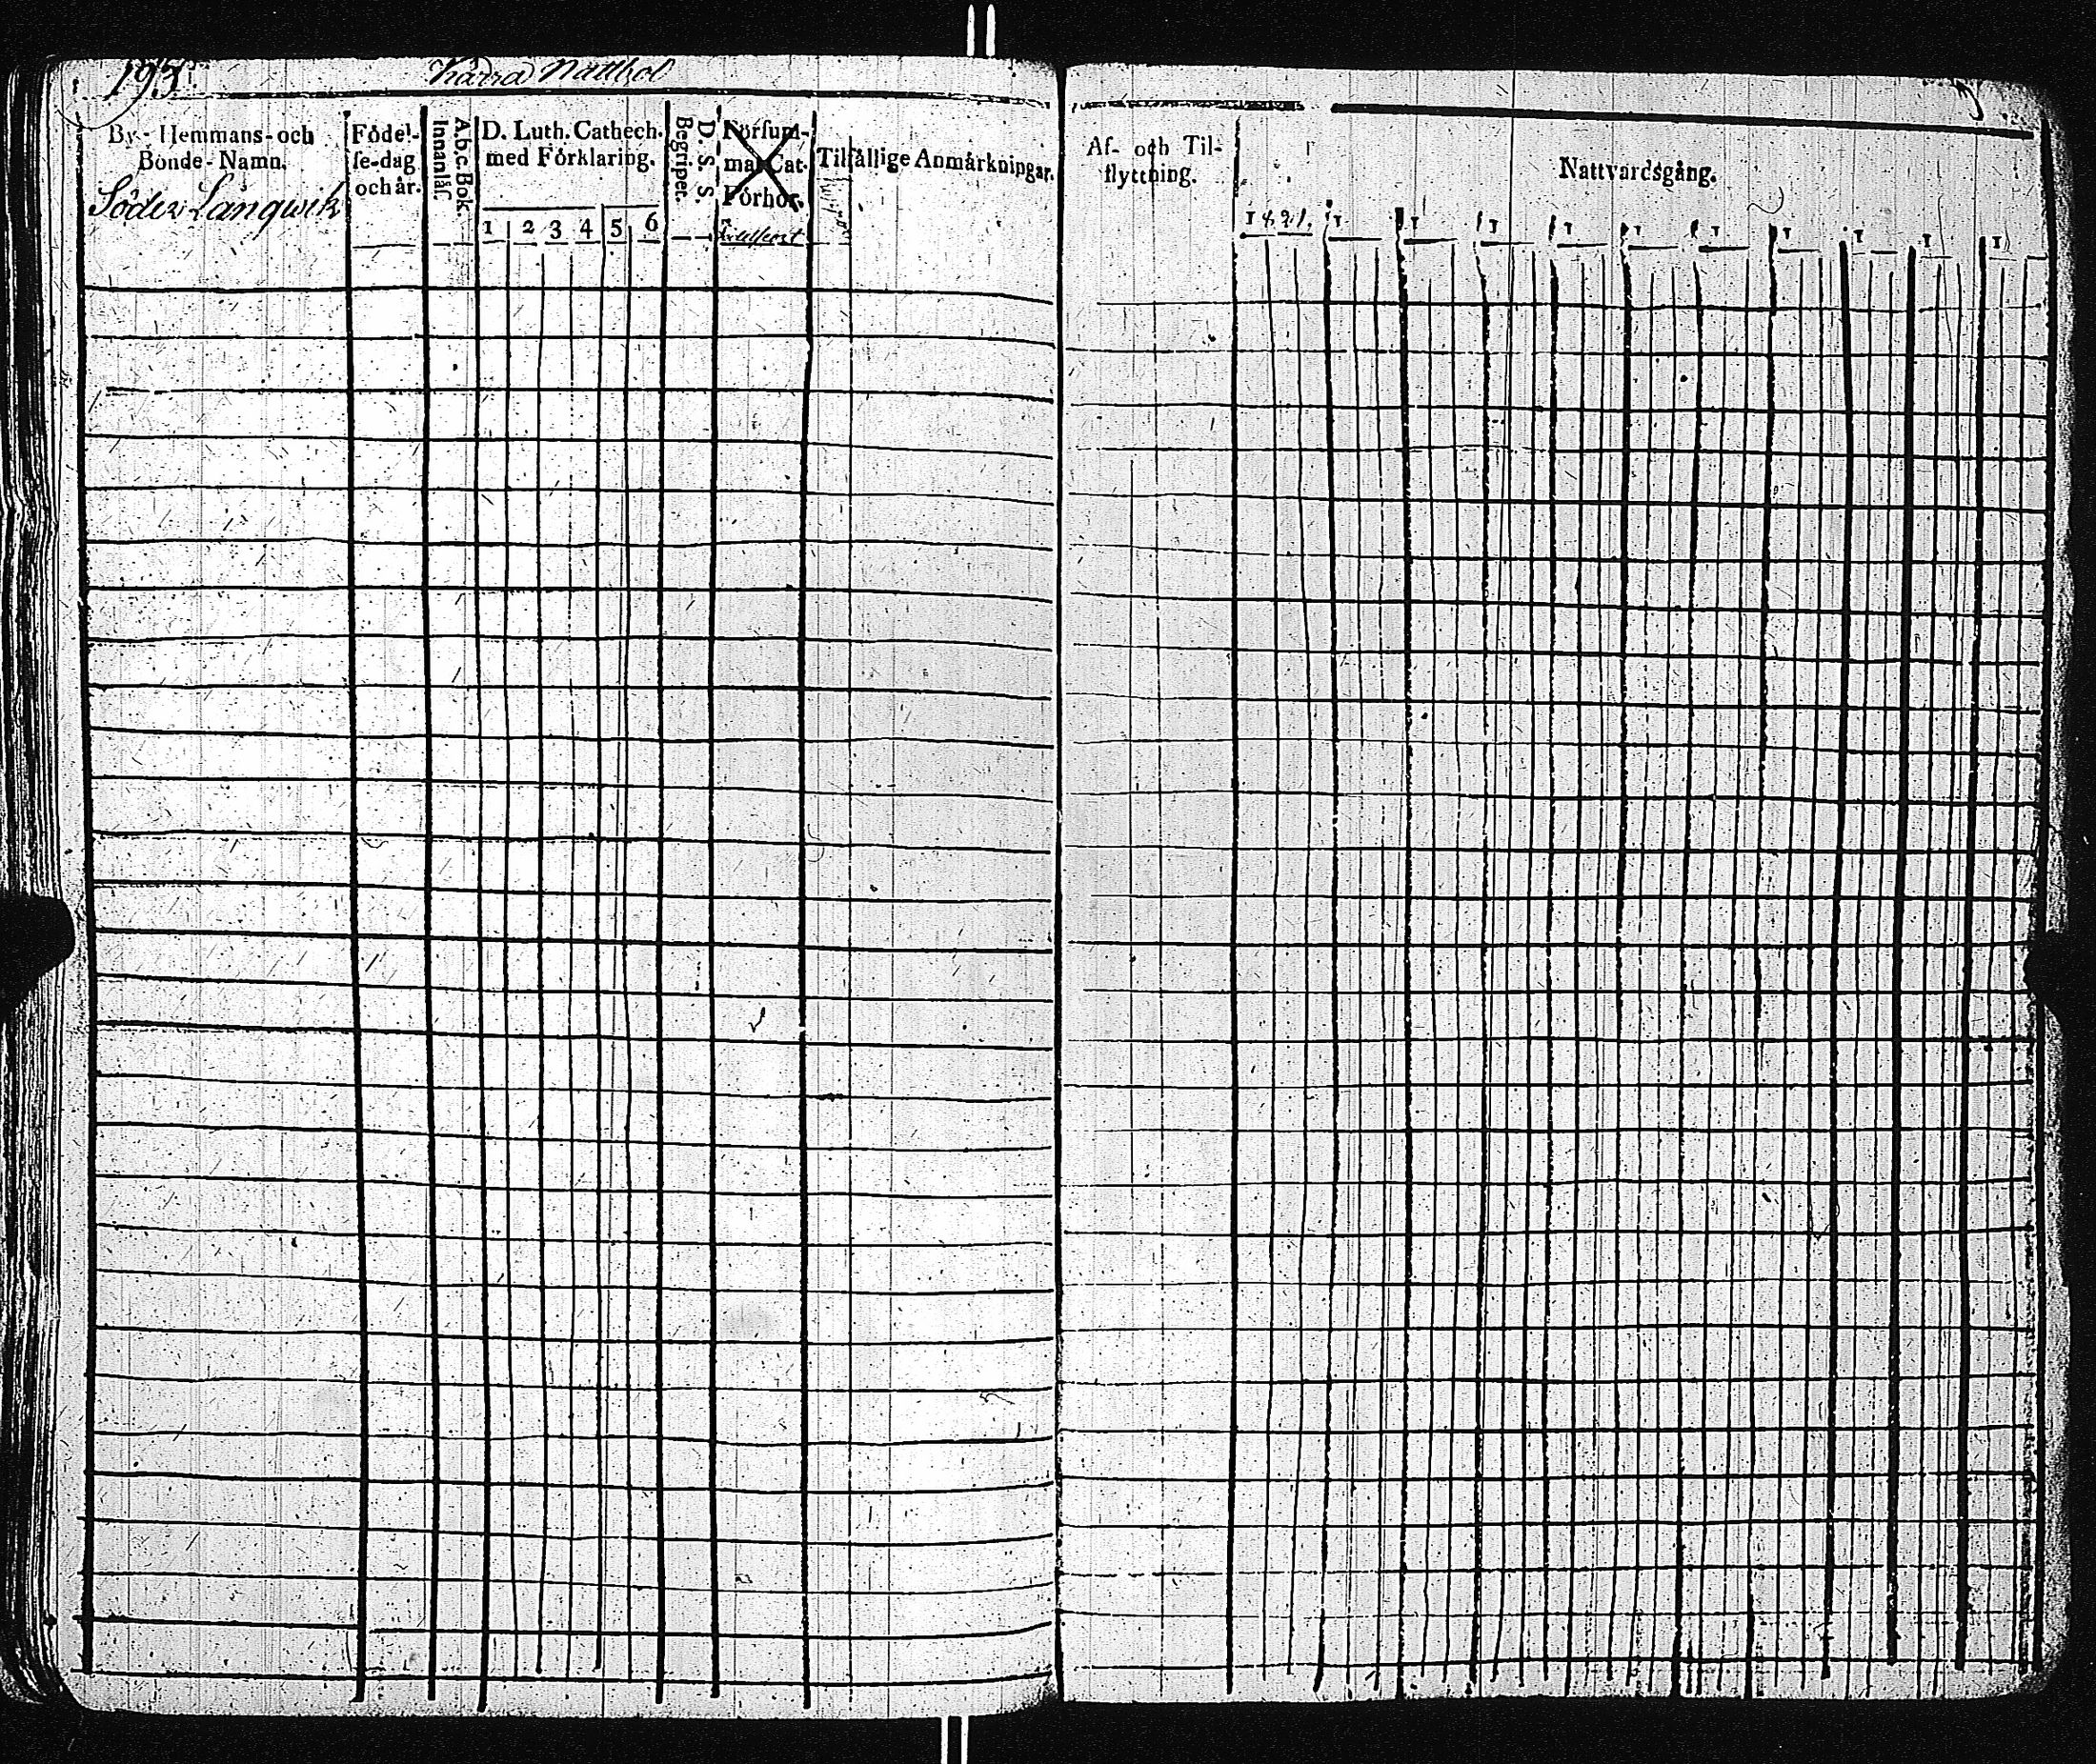 193.
Kårra Nattbol
By- Hemmans- och
Bonde-Namn.
Söder Långwik
Födel-
se-dag
och år.
A.b.c. Bok.
Innanläs.
D. Luth. Cathech.
med Förklaring.
1 2 3 4 5 6
D. S. S.
Begripet.
Försum-
ma Cat.
Förhör.
Tilfällige Anmärkningar.
Af- och Til-
flyttning.
Nattvardsgång.
1821. 1 1 1 1 1 1 1 1 1 1